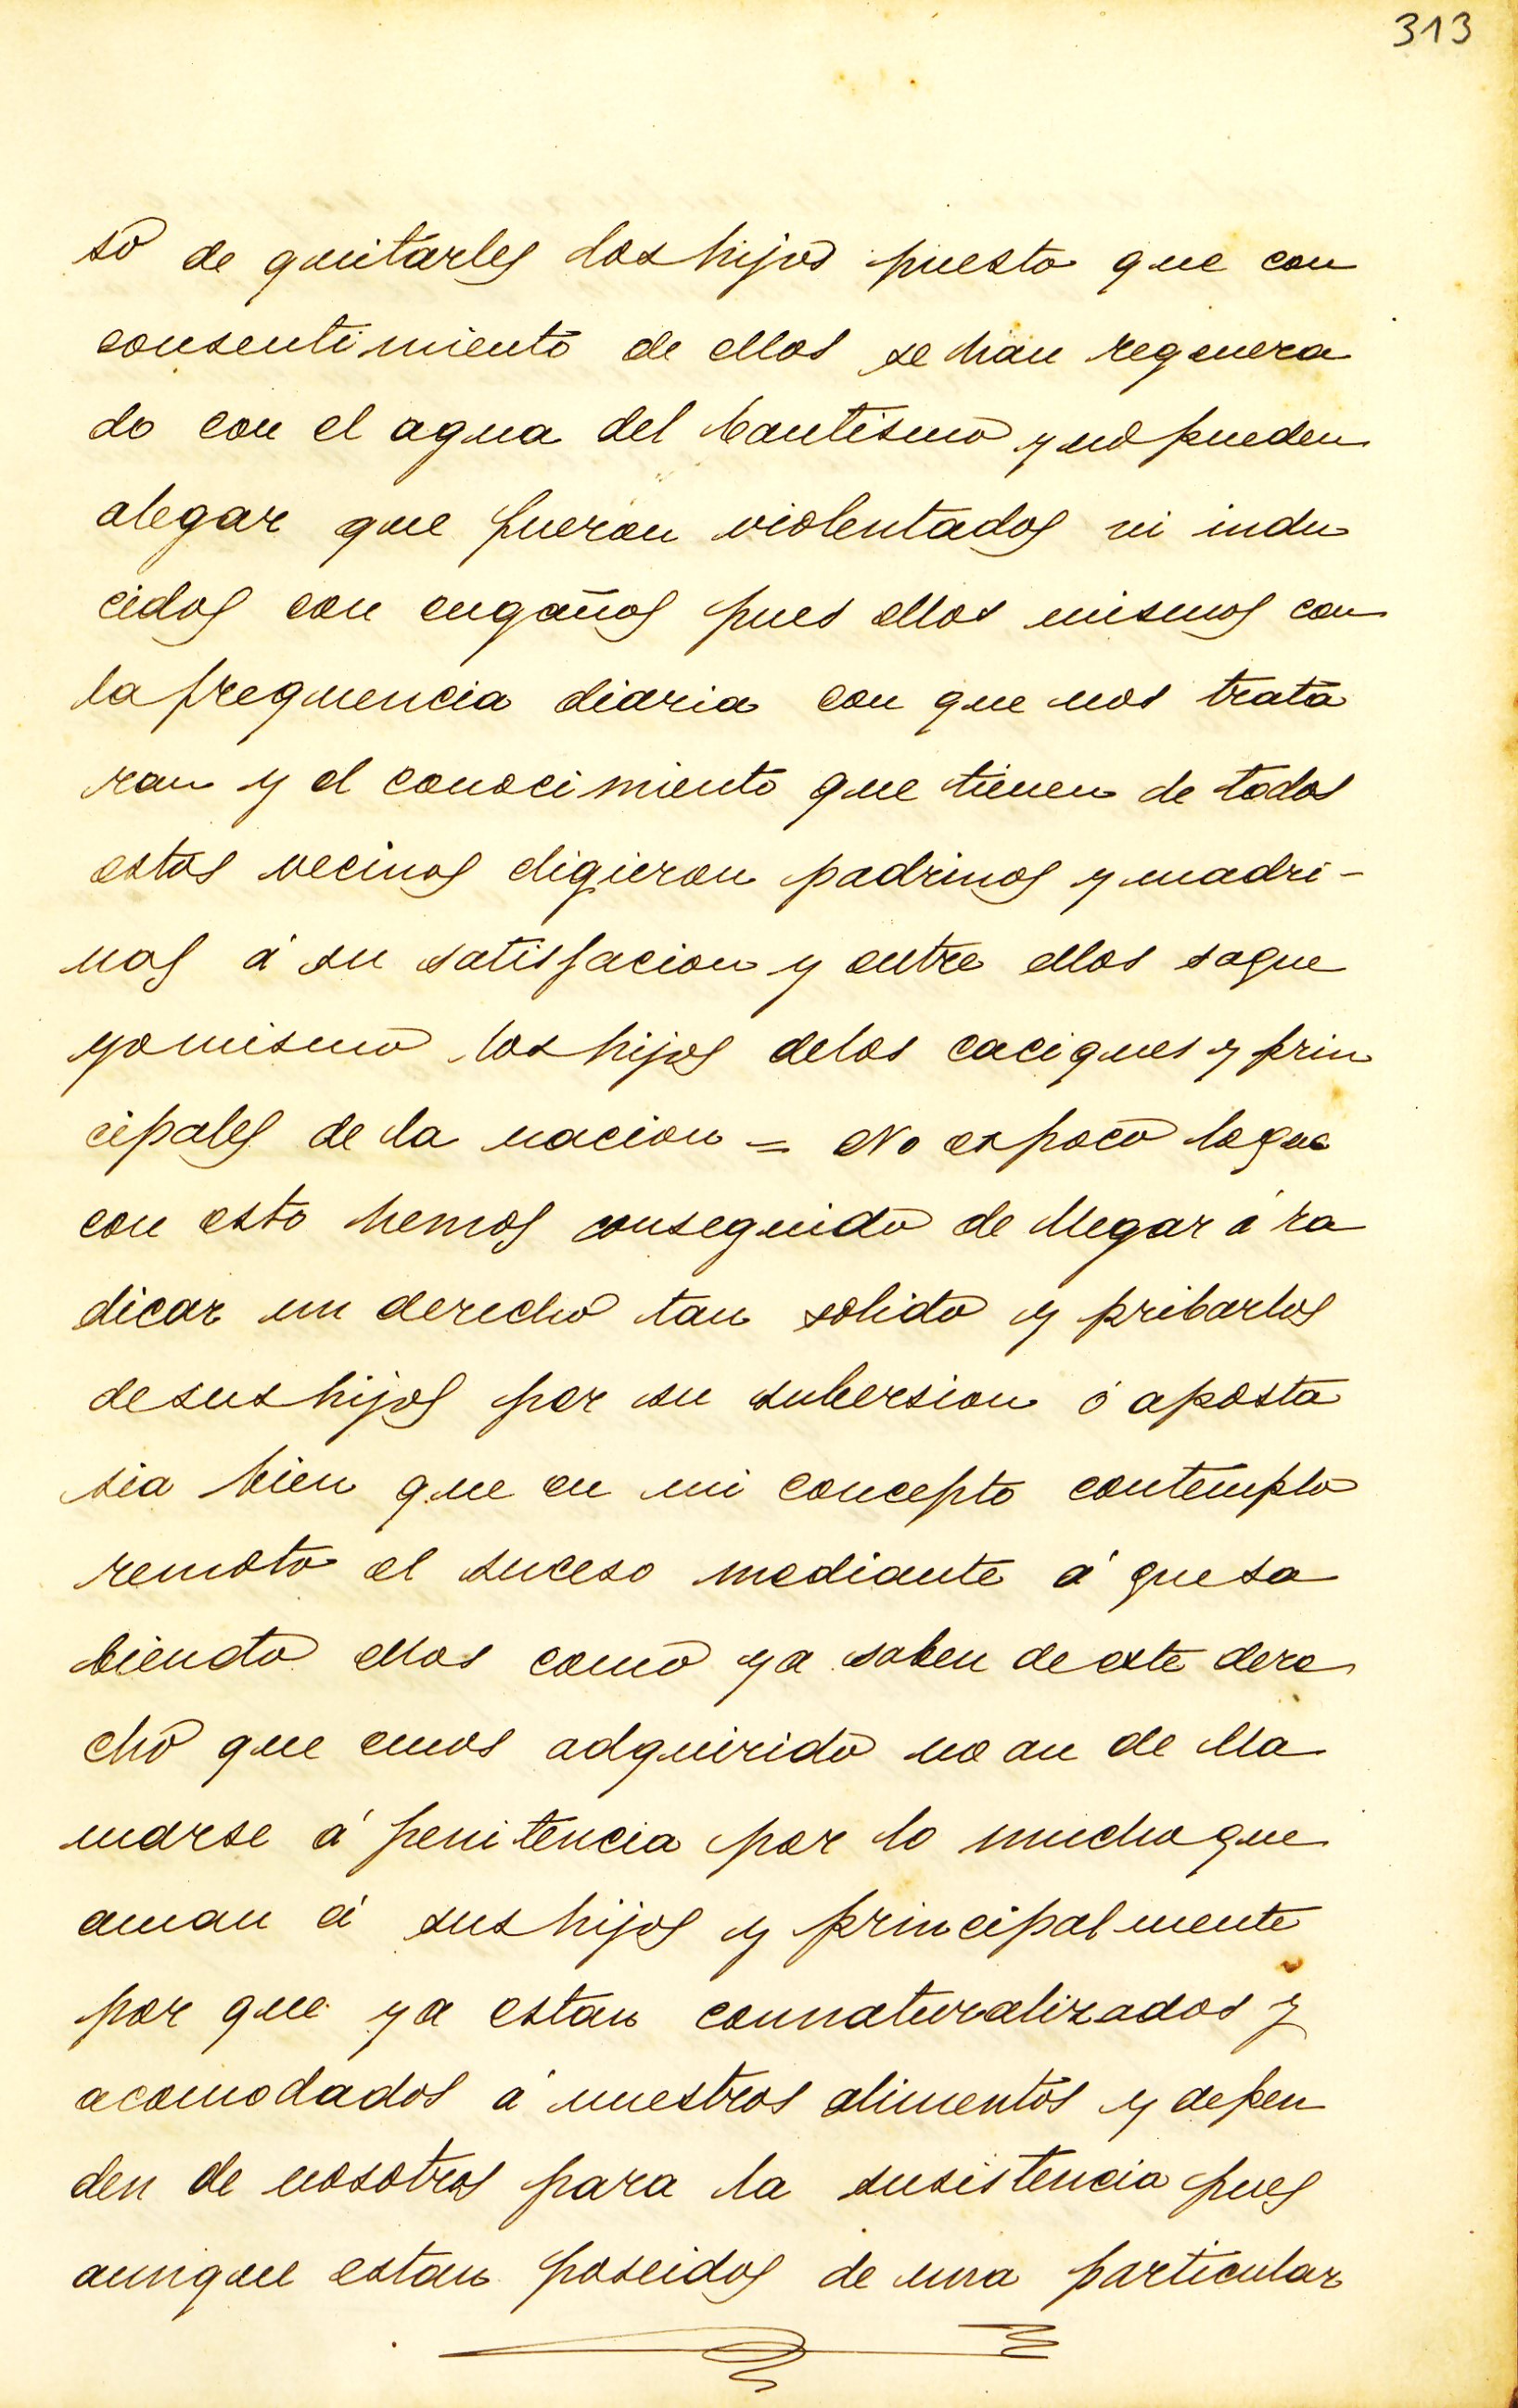 313
so de quitarles los hijos puesto que con
consentimiento de ellos se han regenera
do con el agua del bautismo y no pueden
alegar que fueron violentados ni indu
cidos con engaños pues ellos mismos con
la frequencia diaria con que nos trata
ran y el conocimiento que tienen de todos
estos vecinos eligieron padrinos y madri-
nas á su satisfacion y entre ellos saque
yo mismo los hijos delos caciques y prin
cipales de la nacion = No es poco loque
con esto hemos conseguido de llegar á ra
dicar un derecho tan solido y pribarlos
desus hijos por su subersion ó aposta
sia bien que en mi concepto contemplo
remoto el suceso mediante á que sa
biendo ellos como ya saben de este dere
cho que emos adquirido no an de lla
marse á penitencia por lo mucho que
aman á sus hijos y principalmente
por que ya estan connaturalizados y
acomodados á nuestros alimentos y depen
den de nosotros para la susistencia pues
aunque estan poseidos de una particular